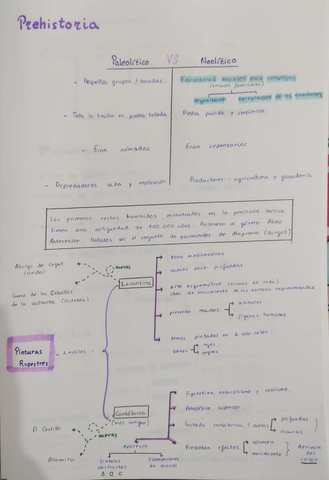 Prehistoria
Paleolítico VS Neolítico
- Pequeños grupos / bandas
Estructuras sociales más complejas
(grupos familiares)
organización
- Todo lo hacían en piedra tallada
Piedra pulida y cerámica
- Eran nómadas
Eran sedentarios
- Depredadores: caza y recolección
Productores: agricultura y ganadería
Los primeros restos homínidos encontrados en la península ibérica
tienen una antigüedad de 900.000 años. Pertenecen al género Homo
Antecessor. Hallados en el conjunto de yacimientos de Atapuerca (Burgos)
Abrigo de Cogul
(Lérida)
cuevas
Cueva de los Caballos
de la Valltorta (Castellón)
Levantina
zona mediterránea
cuevas poco profundas
arte esquemático
idea de movimiento en las escenas representadas
presenta muchos
animales
figuras humanas
temas pintados en 1 solo color
tonos
rojos
negros
Pinturas
Rupestres
2 estilos
Cantábrica
(más antigua)
El Castillo
cuevas
Altamira
Aparecen
Símbolos
abstractos
Estampaciones
de manos
Figurativa, naturalismo y realismo.
Paleolítico superior
Fachada cantábrica
cuevas
profundas
oscuras
Presentan efectos
volumen
movimiento
derivan
del
color